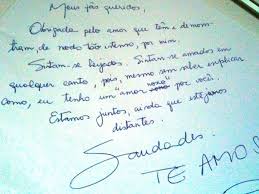 Meus fãs queridos,
Obrigada pelo amor que têm e demons-
tram, de modo tão intenso, por mim.
Sintam-se beijados. Sintam-se amados em
qualquer canto, pois, mesmo sem saber explicar
como, eu tenho um "amor novo" por você.
Estamos juntos, ainda que estejamos
distantes.
Saudades!
TE AMOS